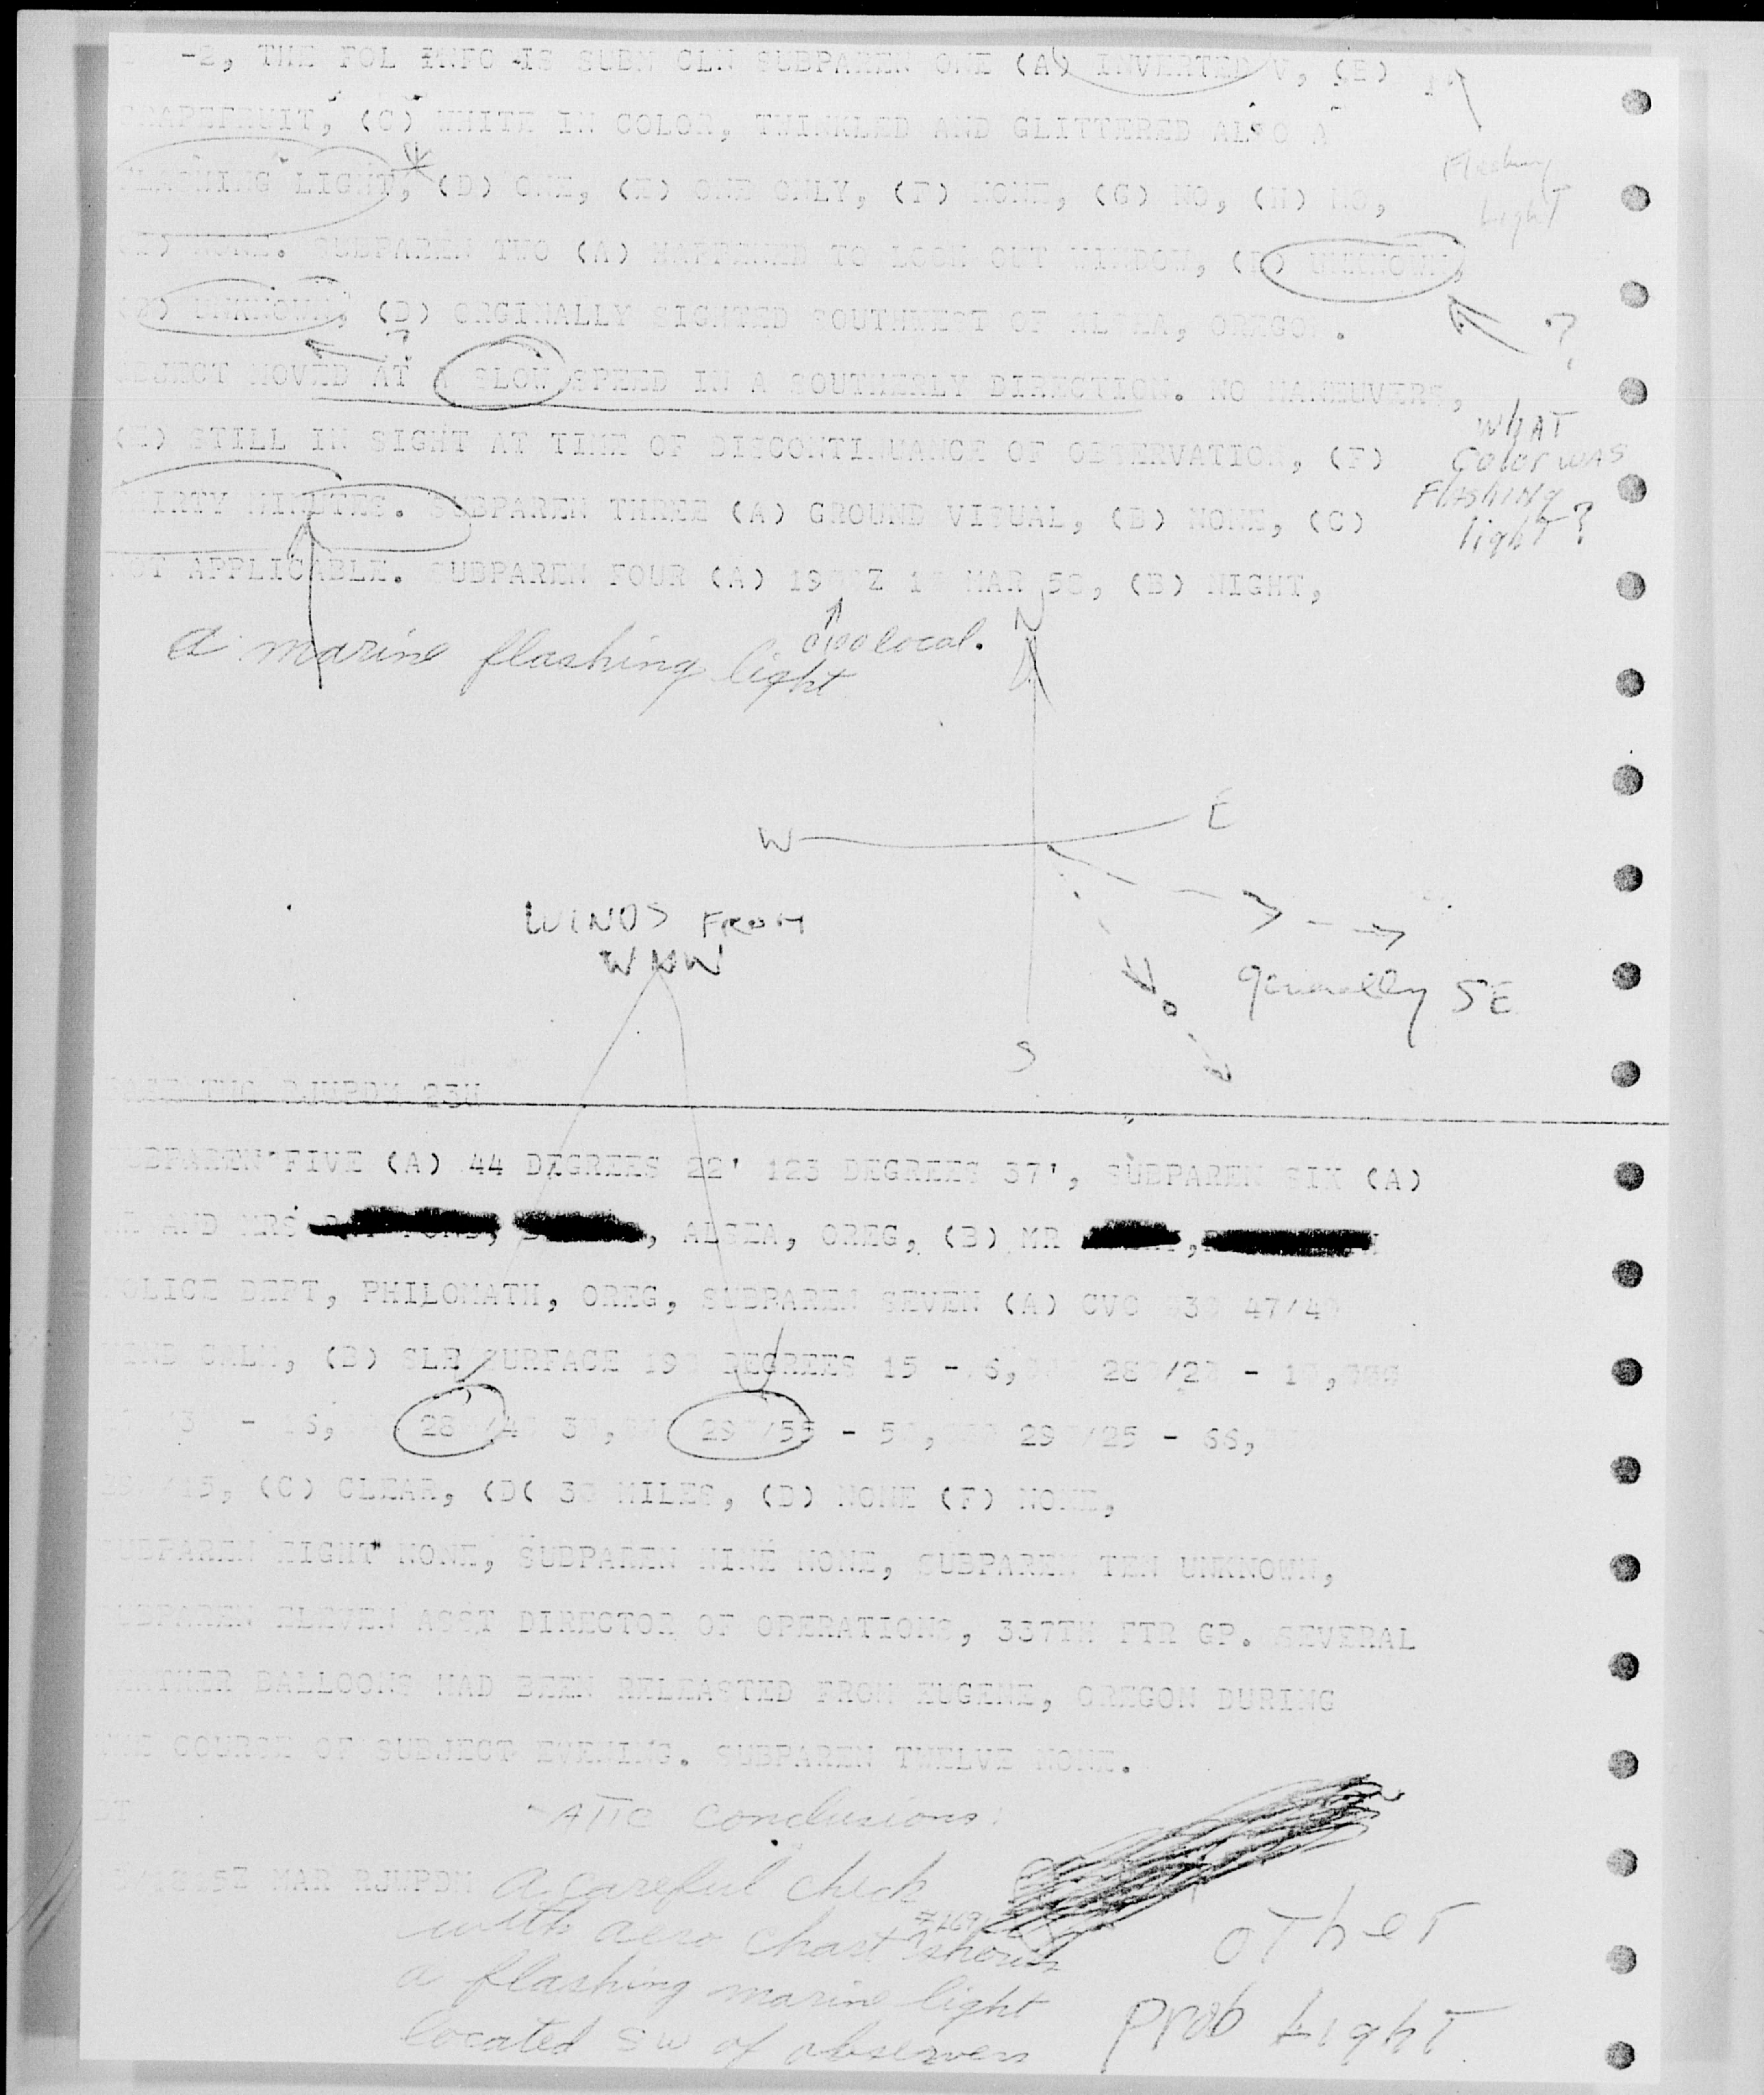 -2, THE FOL INFO IS SUBM CLN SUBPAREN ONE (A) INVERTED V, (B)
GRAPEFRUIT, (C) WHITE IN COLOR, TWINKLED AND GLITTERED ALSO A
FLASHING LIGHT, (D) ONE, (E) ONE ONLY, (F) NONE, (G) NO, (H) NO,
Flashing
Light
(I) NONE. SUBPAREN TWO (A) HAPPENED TO LOOK OUT WINDOW, (B) UNKNOWN,
UNKNOWN, (D) ORGINALLY SIGHTED SOUTHWEST OF ALSEA, OREGON.
?
OBJECT MOVED AT A SLOW SPEED IN A SOUTHERLY DIRECTION. NO MANEUVERS,
(E) STILL IN SIGHT AT TIME OF DISCONTINUANCE OF OBSERVATION, (F)
WhAT
Color WAS
Flashing
light?
THIRTY MINUTES. SUBPAREN THREE (A) GROUND VISUAL, (B) NONE, (C)
NOT APPLICABLE. SUBPAREN FOUR (A) MAR 58, (B) NIGHT,
local.
a marine flashing light
N
W E
WINDS FROM
WNW
generally SE
S
PAGE TWO RJWPDM 23H
SUBPAREN FIVE (A) 44 DEGREES 22' 123 DEGREES 37', SUBPAREN SIX (A)
MR AND MRS , ALSEA, OREG, (B) MR
POLICE DEPT, PHILOMATH, OREG, SUBPAREN SEVEN (A) CVC 47/4
WIND CALM, (B) SLE SURFACE 19 DEGREES 15 - 6, 28 /2 - 1 ,
3 - 16, 28 /4 3 , 29 /55 - 5 , 29 /25 - 66,
/15, (C) CLEAR, (D( 30 MILES, (D) NONE (F) NONE,
SUBPAREN EIGHT NONE, SUBPAREN NINE NONE, SUBPAREN TEN UNKNOWN,
SUBPAREN ELEVEN ASST DIRECTOR OF OPERATIONS, 337TH FTR GP. SEVERAL
WEATHER BALLOONS HAD BEEN RELEASTED FROM EUGENE, OREGON DURING
THE COURSE OF SUBJECT EVENING. SUBPAREN TWELVE NONE.
BT
ATIC conclusions:
MAR RJWPDM
A careful check
with aero chart shows
a flashing marine light
located SW of observers
OTher
Prob Light